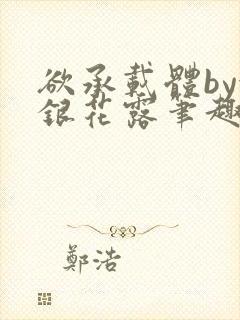 欲承載體by
銀花露筆趣
鄭浩